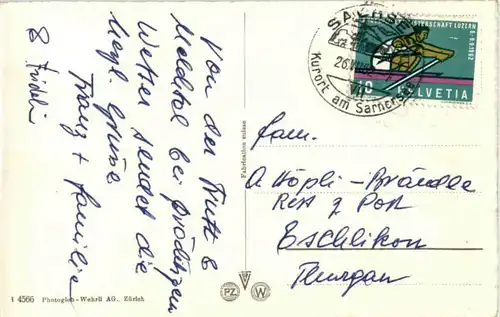 Von der Frutt &
Melchtal bei prächtigem
Wetter sendet die
herzl. Grüsse
Franz + Familie
& Fridli
SACHSELN
26.VII.
Kurort am Sarnersee
MEISTERSCHAFT LUZERN
6-9.9.1962
10 HELVETIA
Fabrication suisse
Fam.
A Höpli-Brändle
Rest z Post
Eschlikon
Thurgau
4566 Photoglob-Wehrli AG., Zürich
PZ W